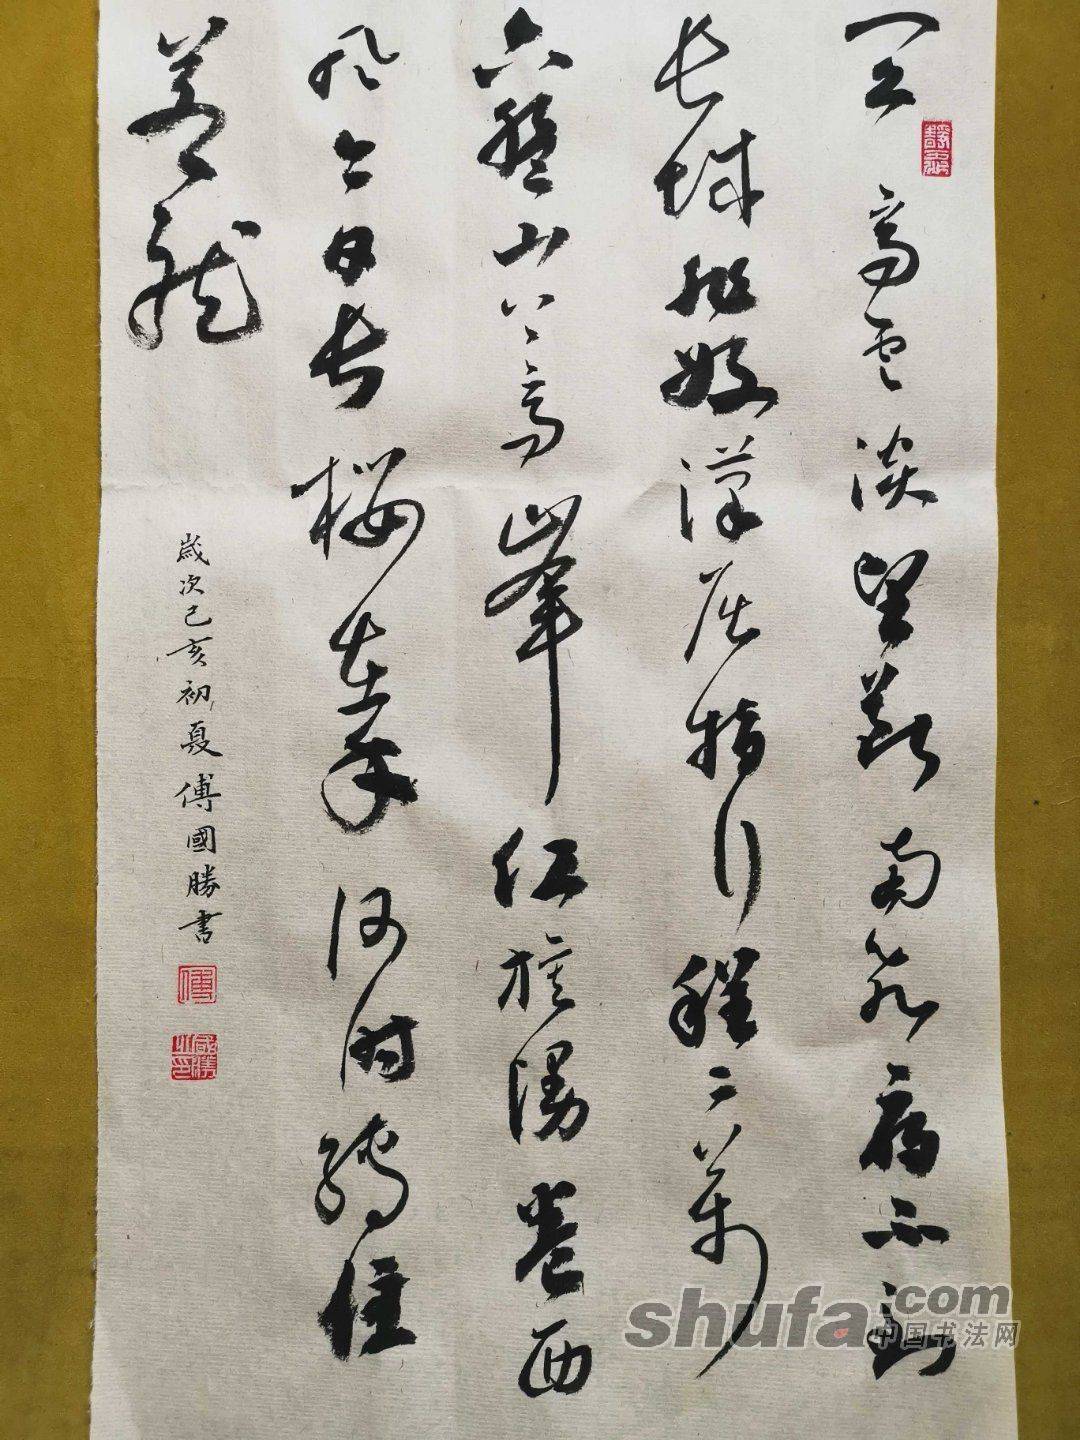 天高雲淡望斷南飛雁不到
長城非好漢屈指行程二萬
六盤山上高峯紅旗漫卷西
風今日長纓在手何時縛住
蒼龍
歲次己亥初夏傅國勝書
傅
國勝之印
shufa.com
中国书法网